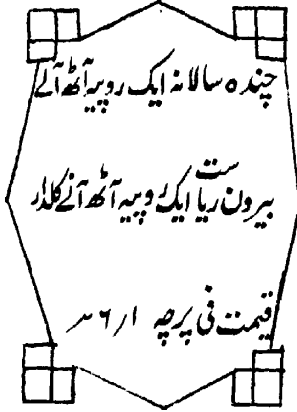 چندہ سالانہ ایک روپیہ آٹھ آنے
بیرون ریاست ایک روپیہ آٹھ آنے کلدار
قیمت فی پرچہ